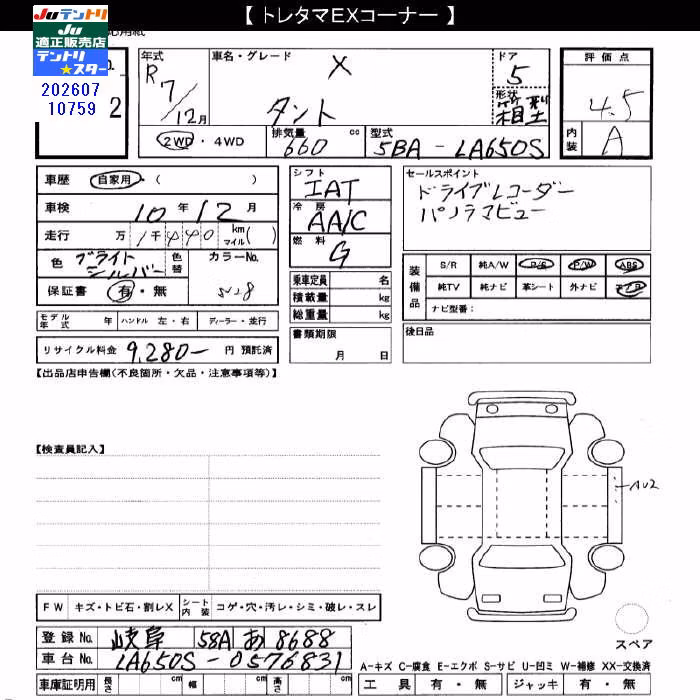 【 トレタマEXコーナー 】
Juテントリ
Ju
適正販売店
テントリ
★スター
202607
10759
No.
2
年式 車名・グレード ドア 評価点
R7/12月 X 5 4.5
タント 形状 箱型
2WD・4WD 排気量 660 cc 型式 5BA-LA650S 内装 A
車歴 自家用・( )
シフト IAT
セールスポイント
ドライブレコーダー
パノラマビュー
車検 10年12月
冷房 AA/C
走行 万1千440 km マイル( )
燃料 G
色 ブライトシルバー 色替 カラーNo. S28
保証書 有・無
乗車定員 名
積載量 kg
総重量 kg
装備品 S/R 純A/W P/S P/W ABS
純TV 純ナビ 革シート 外ナビ エアB
ナビ型番:
モデル年式 年 ハンドル 左・右 ディーラー・並行
書類期限 月 日
後日品
リサイクル料金 9,280- 円 預託済
【出品店申告欄(不良箇所・欠品・注意事項等)】
【検査員記入】
AU2
FW キズ・トビ石・割レX シート内装 コゲ・穴・汚レ・シミ・破レ・スレ
スペア
登録No. 岐阜 58A あ 8688
車台No. LA650S-0576831
A-キズ C-腐食 E-エクボ S-サビ U-凹ミ W-補修 XX-交換済
車庫証明用 長さ cm 幅 cm 高さ cm 工具 有・無 ジャッキ 有・無